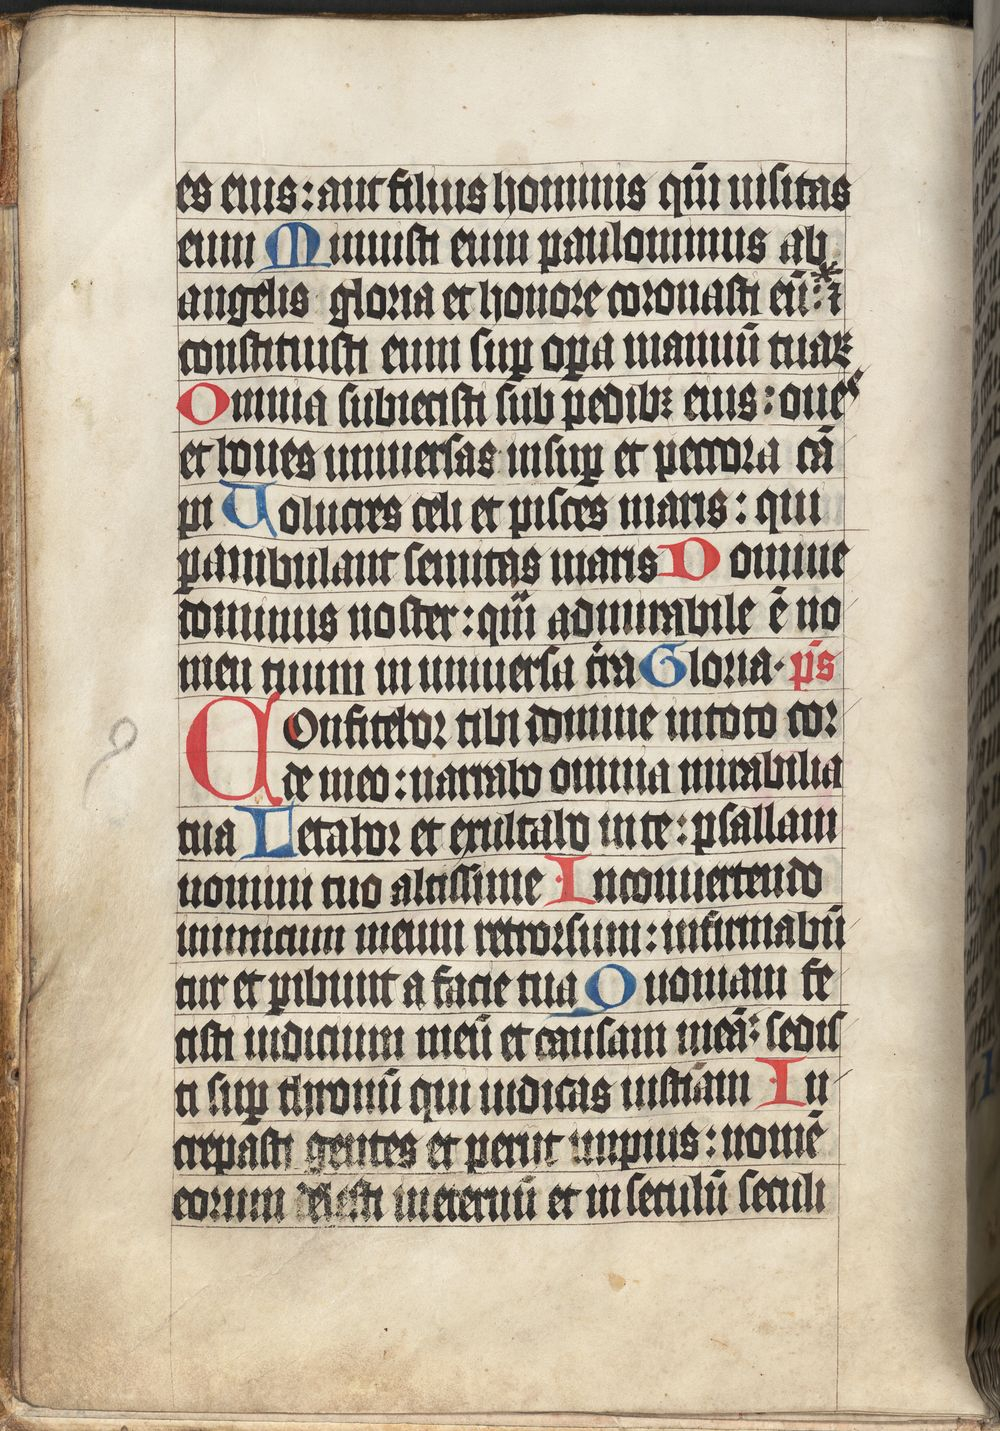 es eius: aut filius hominis qm̄ uisitas
eum Minuisti eum paulominus ab
angelis gloria et honore coronasti eū: ⁊
constituisti eum suꝑ oꝑa manuū tuaꝝ
Omnia subiecisti sub pedibꝫ eius: oues
et boues uniuersas insuꝑ et peccora cā
pi Uolucres celi et pisces maris: qui
ꝑambulant semitas maris Domine
dominus noster: qm̄ admirabile ē no
men tuum in uniuersa tr̄a Gloria. ps̄
Confitebor tibi domine in toto cor
de meo: narrabo omnia mirabilia
tua Letabor et exultabo in te: psallam
nomini tuo altissime In conuertendo
inimicum meum retrorsum: infirmabū
tur et ꝑibunt a facie tua Quoniam fe
cisti iudicium meū et causam meā: sedis
ti suꝑ thronū qui iudicas iustitiam In
crepasti gentes et periit impius: nomē
eorum delesti ineternū et in seculū seculi